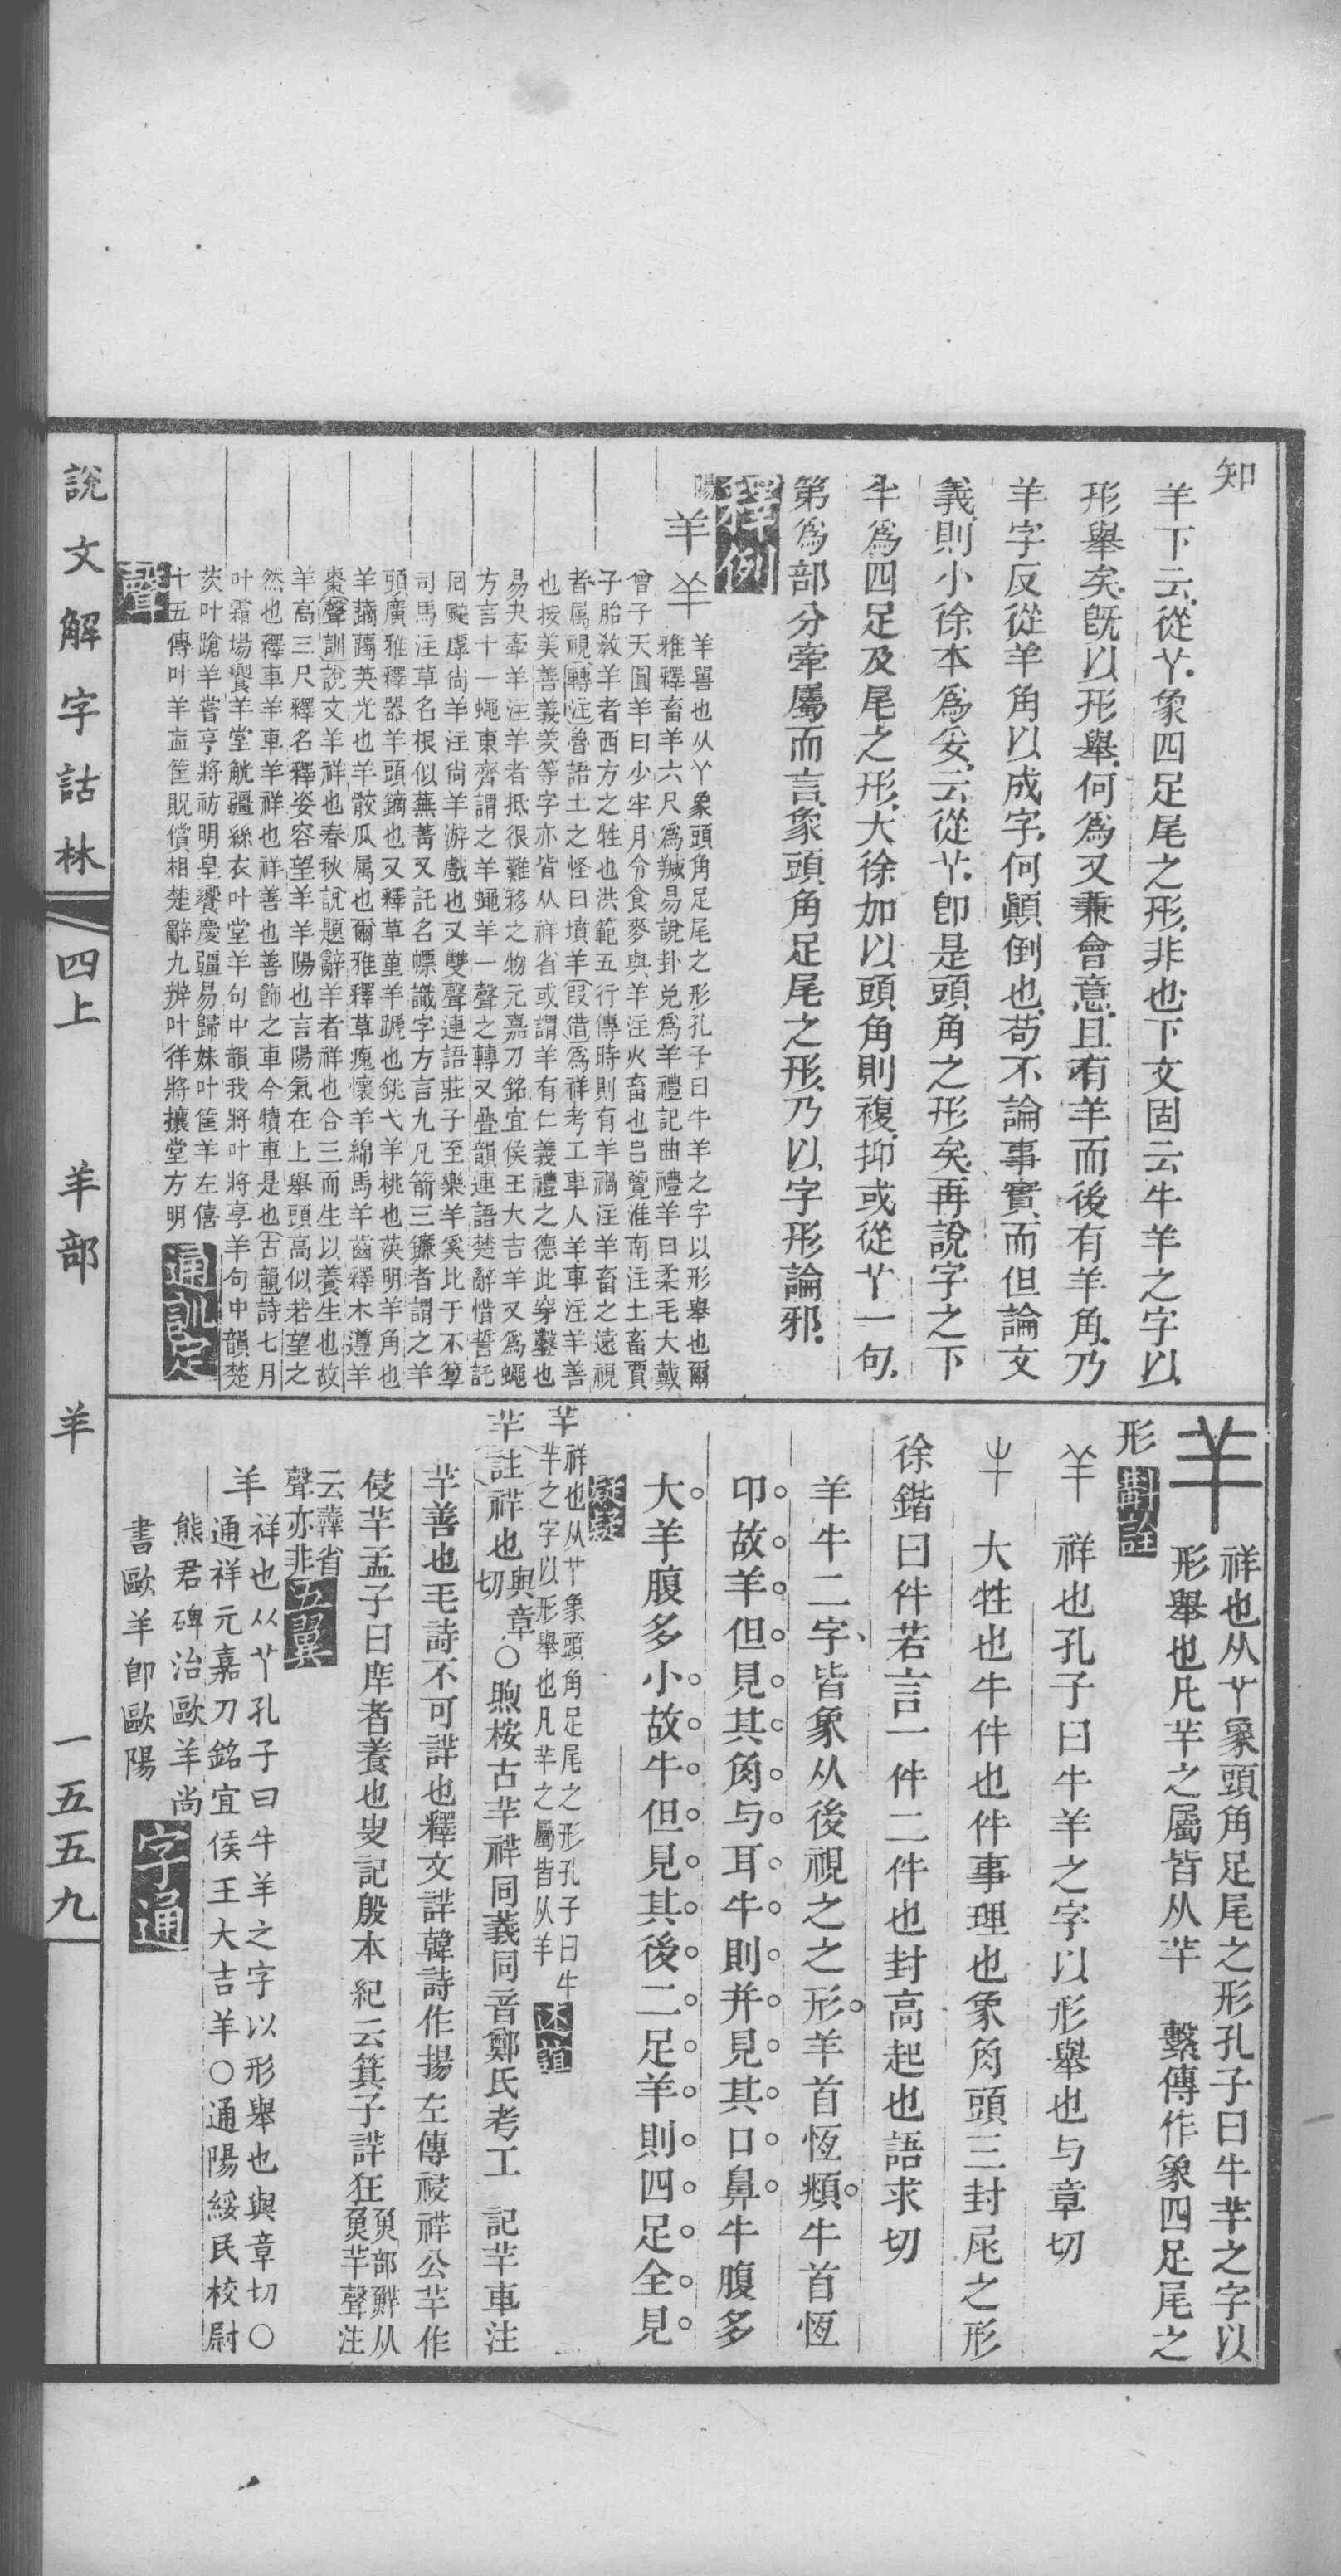 知
羊下云從𦫳象四足尾之形非也下文固云牛羊之字以
形舉矣旣以形舉何爲又兼會意且有羊而後有羊角乃
羊字反從羊角以成字何顚倒也苟不論事實而但論文
義則小徐本爲妥云從𦫳卽是頭角之形矣再說字之下
半爲四足及尾之形大徐加以頭角則複抑或從𦫳一句
第爲部分牽屬而言象頭角足尾之形乃以字形論邪
釋例
陽
羊
羊
羊詈也从丫象頭角足尾之形孔子曰牛羊之字以形舉也爾
雅釋畜羊六尺爲羬易說卦兌爲羊禮記曲禮羊曰柔毛大戴
曾子天圓羊曰少牢月令食麥與羊注火畜也呂覽淮南注土畜賈
子胎敎羊者西方之牲也洪範五行傳時則有羊禍注羊畜之遠視
者属視 轉注 魯語土之怪曰墳羊 叚借 爲祥考工車人羊車注羊善
也按美善義羑等字亦皆从祥省或謂羊有仁義禮之德此穿鑿也
易夬牽羊注羊者抵很難移之物元嘉刀銘宜侯王大吉羊又爲蠅
方言十一蠅東齊謂之羊蠅羊一聲之轉又疊韻連語楚辭惜誓託
囘飈虖尙羊注尙羊游戲也又雙聲連語莊子至樂羊奚比于不箰
司馬注草名根似蕪菁又託名幖識字方言九凡箭三鐮者謂之羊
頭廣雅釋器羊頭鏑也又釋草堇羊蹏也銚弋羊桃也英明羊角也
羊䕽䕽英光也羊骹瓜属也爾雅釋草瘣懷羊綿馬羊齒釋木遵羊
棗 聲訓 說文羊祥也春秋說題辭羊者祥也合三而生以養生也故
羊高三尺釋名釋姿容望羊羊陽也言陽氣在上舉頭高似若望之
然也釋車羊車羊祥也祥善也善飾之車今犢車是也 古韻 詩七月
叶霜場饗羊堂觥疆絲衣叶堂羊句中韻我將叶將享羊句中韻楚
茨叶蹌羊嘗亨將祊明皇饗慶疆易歸妹叶筐羊左僖
十五傳叶羊衁筐貺償相楚辭九辨叶徉將攘堂方明
通訓定
聲
羊
祥也从𦫳象頭角足尾之形孔子曰牛羊之字以
形舉也凡羊之屬皆从羊　繫傳作象四足尾之
形
斠詮
羊　祥也孔子曰牛羊之字以形舉也与章切
牛　大牲也牛件也件事理也象角頭三封尾之形
徐鍇曰件若言一件二件也封高起也語求切
羊牛二字皆象从後視之之形羊首恆頫牛首恆
卬故羊但見其角与耳牛則并見其口鼻牛腹多
大羊腹多小故牛但見其後二足羊則四足全見
疑疑
羊 祥也从𦫳象頭角足尾之形孔子曰牛
羊之字以形舉也凡羊之屬皆从羊
述誼
羊 註 祥也 與章切 ○煦桉古羊祥同義同音鄭氏考工記羊車注
羊善也毛詩不可詳也釋文詳韓詩作揚左傳祲祥公羊作
侵羊孟子曰庠者養也史記殷本紀云箕子詳狂 䲆部鮮从
䲆羊聲注
云羴省
聲亦非
五翼
羊 祥也从𦫳孔子曰牛羊之字以形舉也與章切○
通祥元嘉刀銘宜侯王大吉羊○通陽綏民校尉
熊君碑治歐羊尚
書歐羊卽歐陽
字通
說文解字詁林　四上　羊部　羊　一五五九